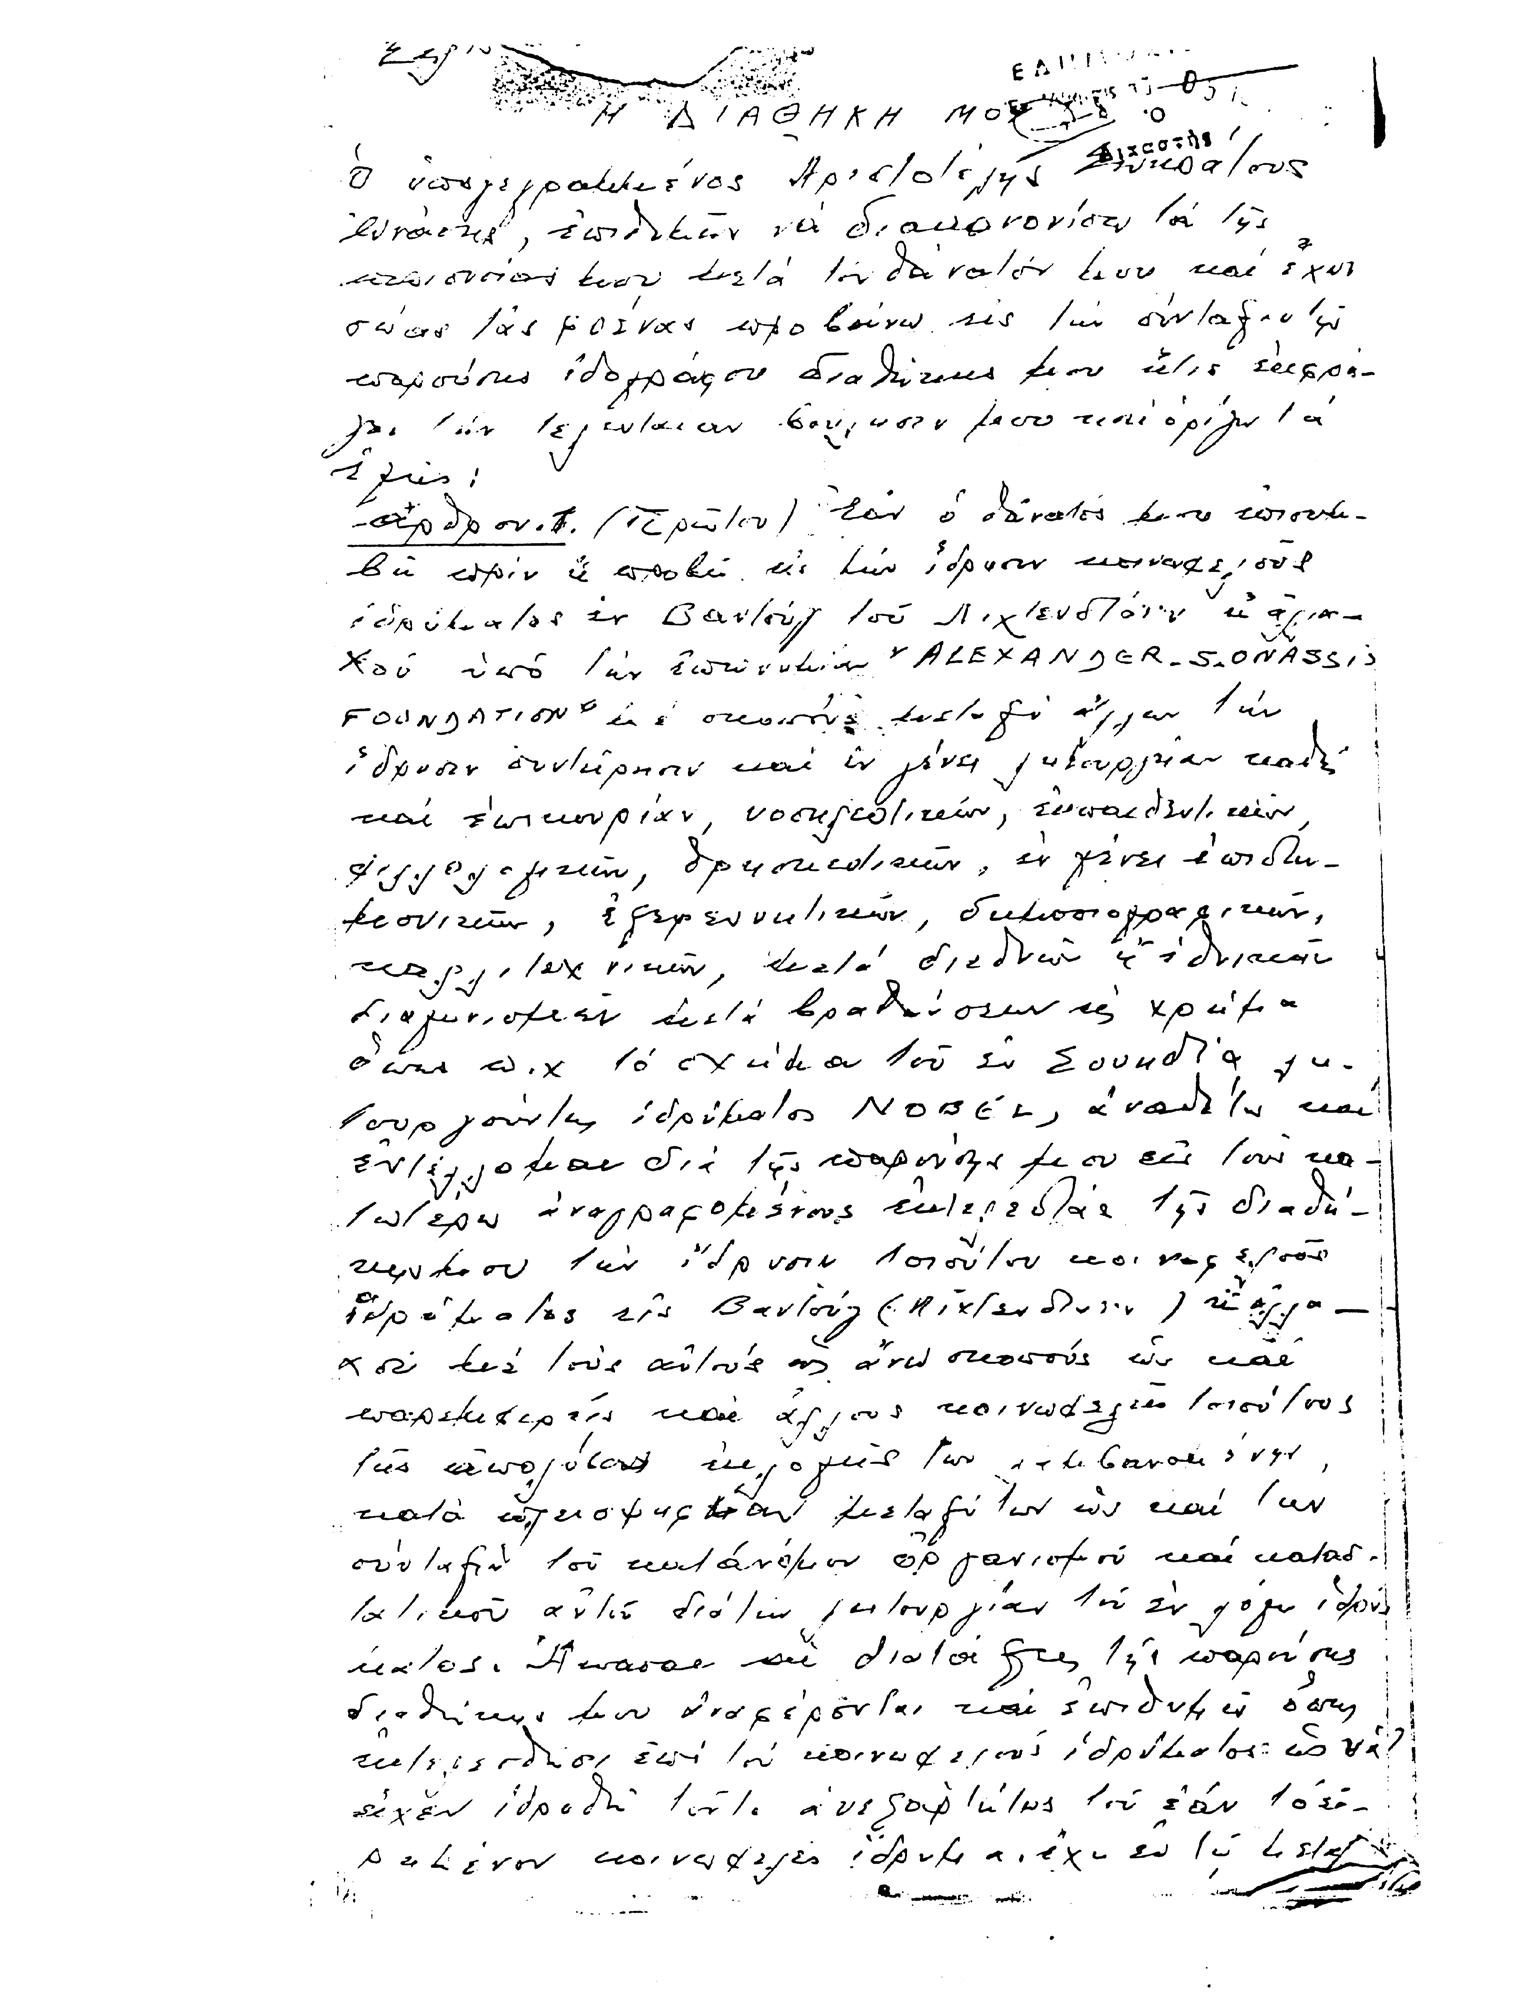 Η ΔΙΑΘΗΚΗ ΜΟΥ
Δικαστής
Ὁ ὑπογεγραμμένος Ἀριστοτέλης Σωκράτους
Ὠνάσης, ἐπιθυμῶν νά διακανονίσω τά τῆς
περιουσίας μου μετά τόν θάνατόν μου καί ἔχων
σώας τάς φρένας προβαίνω εἰς τήν σύνταξιν τῆς
παρούσης ἰδογράφου διαθήκης μου ἥτις ἐκφρά-
ζει τήν τελευταίαν βούλησιν μου καί ὁρίζω τά
ἑξῆς:
ἄρθρον 1. (Πρῶτον) Ἐάν ὁ θάνατός μου ἐπισυμ-
βῇ πρίν ἤ προβῶ εἰς τήν ἵδρυσιν κοινωφελοῦς
ἱδρύματος ἐν Βαντούζ τοῦ Λιχτενστάιν ἤ ἀλλα-
χοῦ ὑπό τήν ἐπωνυμίαν "ALEXANDER-S-ONASSIS
FOUNDATION" μέ σκοπούς μεταξύ ἄλλων τήν
ἵδρυσιν συντήρησιν καί ἐν γένει λειτουργίαν καθώς
καί ἐπικουρίαν, νοσηλευτικῶν, ἐκπαιδευτικῶν,
φιλολογικῶν, θρησκευτικῶν, ἐν γένει ἐπιστη-
μονικῶν, ἐξερευνητικῶν, δημοσιογραφικῶν,
καλλιτεχνικῶν, μετά διεθνῶν ἤ ἐθνικῶν
διαγωνισμῶν μετά βραβεύσεων εἰς χρῆμα
ὅπως π.χ τό σχῆμα τοῦ ἐν Σουηδίᾳ λει-
τουργοῦντος ἱδρύματος NOBEL, ἀναθέτω καί
ἐντέλλομαι διά τῆς παρούσης μου εἰς τούς κα-
τωτέρω ἀναγραφομένους ἐκτελεστάς τῆς διαθή-
κης μου τήν ἵδρυσιν τοιούτου κοινωφελοῦς
ἱδρύματος εἰς Βαντούζ (Λίχτενσταιν) ἤ ἀλλα-
χοῦ μέ τούς αὐτούς ὡς ἄνω σκοπούς ὡς καί
παρεμφερεῖς καί ἄλλους κοινωφελεῖς τοιούτους
τῆς ἀπολύτου ἐκλογῆς των λαμβανομένης,
κατά πλειοψηφίαν μεταξύ των ὡς καί την
σύνταξιν τοῦ καταλλήλου ὀργανισμοῦ καί κατασ-
τατικοῦ αὐτοῦ διά τήν λειτουργίαν τοῦ ἐν λόγῳ ἱδρύ
ματος. Ἅπασαι αἱ διατάξεις τῆς παρούσης
διαθήκης μου ἀναφέρονται καί ἐπιθυμῶ ὅπως
ἐκτελεσθῶσι ἐπί τοῦ κοινωφελοῦς ἱδρύματος ὡς νά
εἶχεν ἱδρυθῇ τοῦτο ἀνεξαρτήτως τοῦ ἐάν τό εἰ-
ρημένον κοινωφελές ἵδρυμα ἔχῃ ἐν τῷ μεταξύ